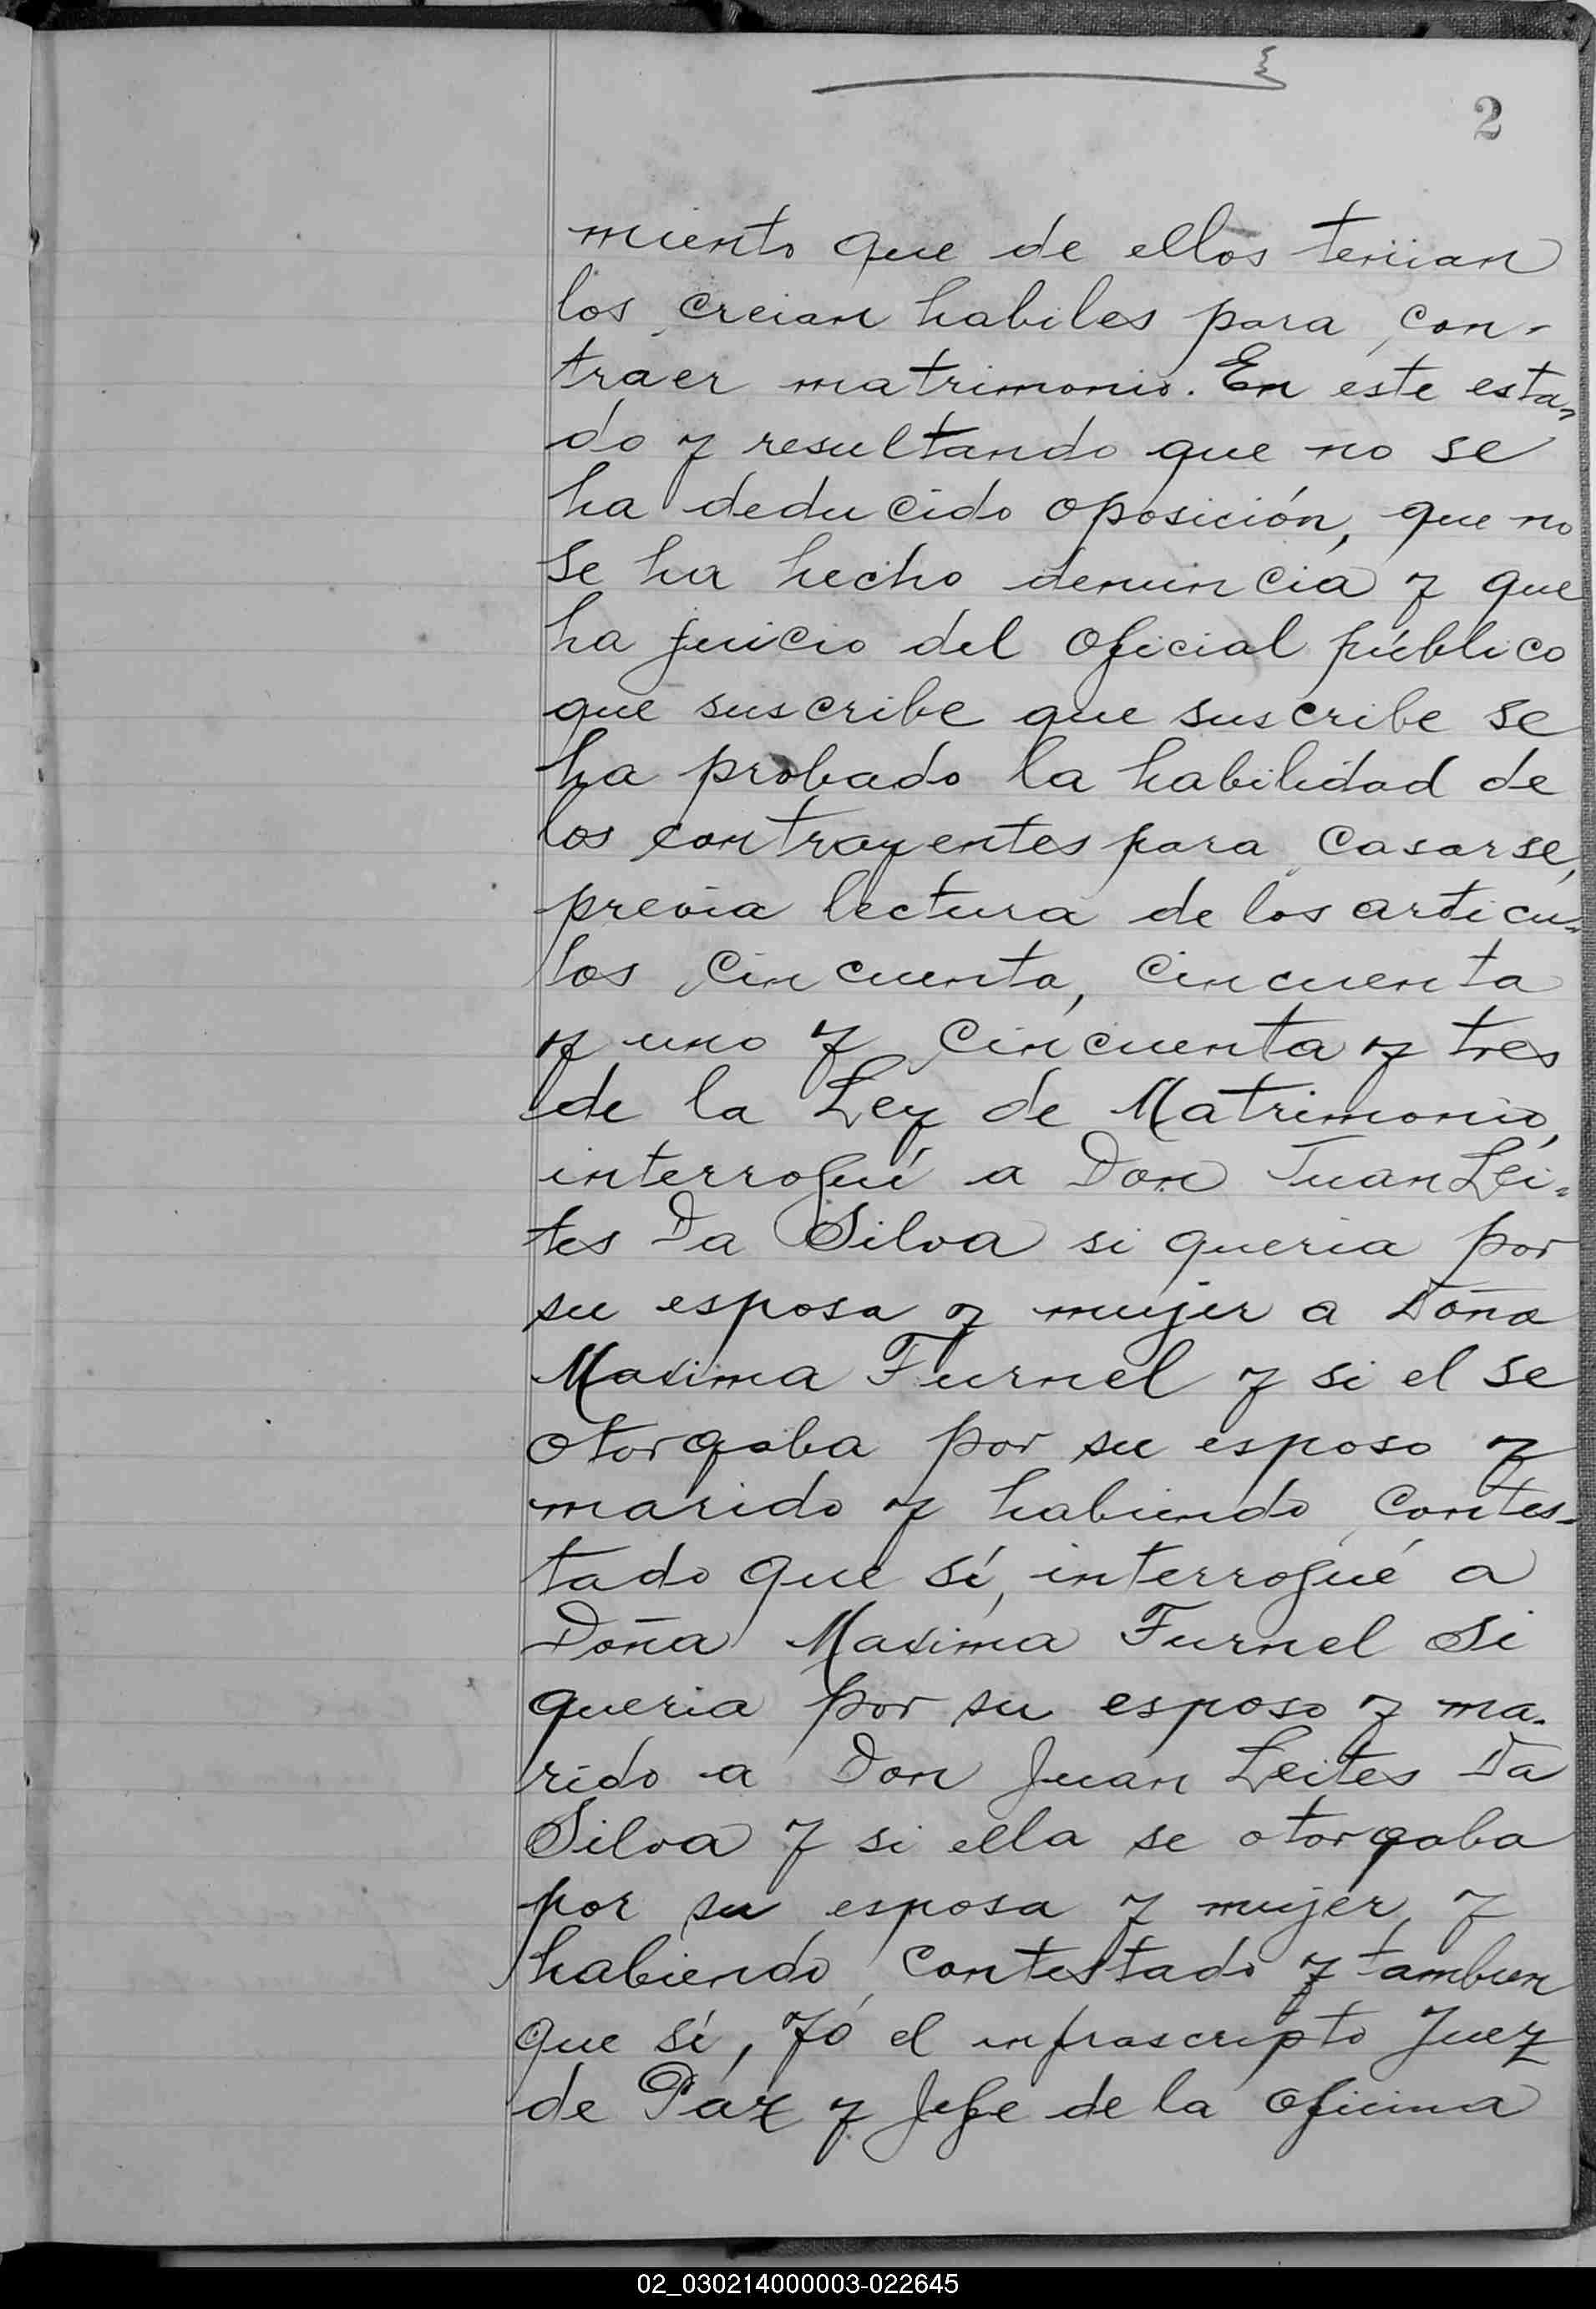 2
miento que de ellos tenian
los creian habiles para con-
traer matrimonio. En este esta=
do y resultando que no se
ha deducido oposición, que no
se ha hecho denuncia y que
ha juicio del oficial público
que suscribe que suscribe se
ha probado la habilidad de
los contrayentes para casarse,
previa lectura de los articu=
los cincuenta, cincuenta
y uno y cincuenta y tres
de la Ley de Matrimonio,
interrogué a Don Juan Lei=
tes Da Silva si queria por
su esposa y mujer a Doña
Maxima Furnel y si el se
otorgaba por su esposo y
marido y habiendo contes=
tado que sí, interrogué a
Doña Maxima Furnel si
queria por su esposo y ma-
rido a Don Juan Leites Da
Silva y si ella se otorgaba
por su esposa y mujer, y
habiendo contestado y tambien
que sí, yó el infrascripto Juez
de Paz y Jefe de la oficina
02_030214000003-022645